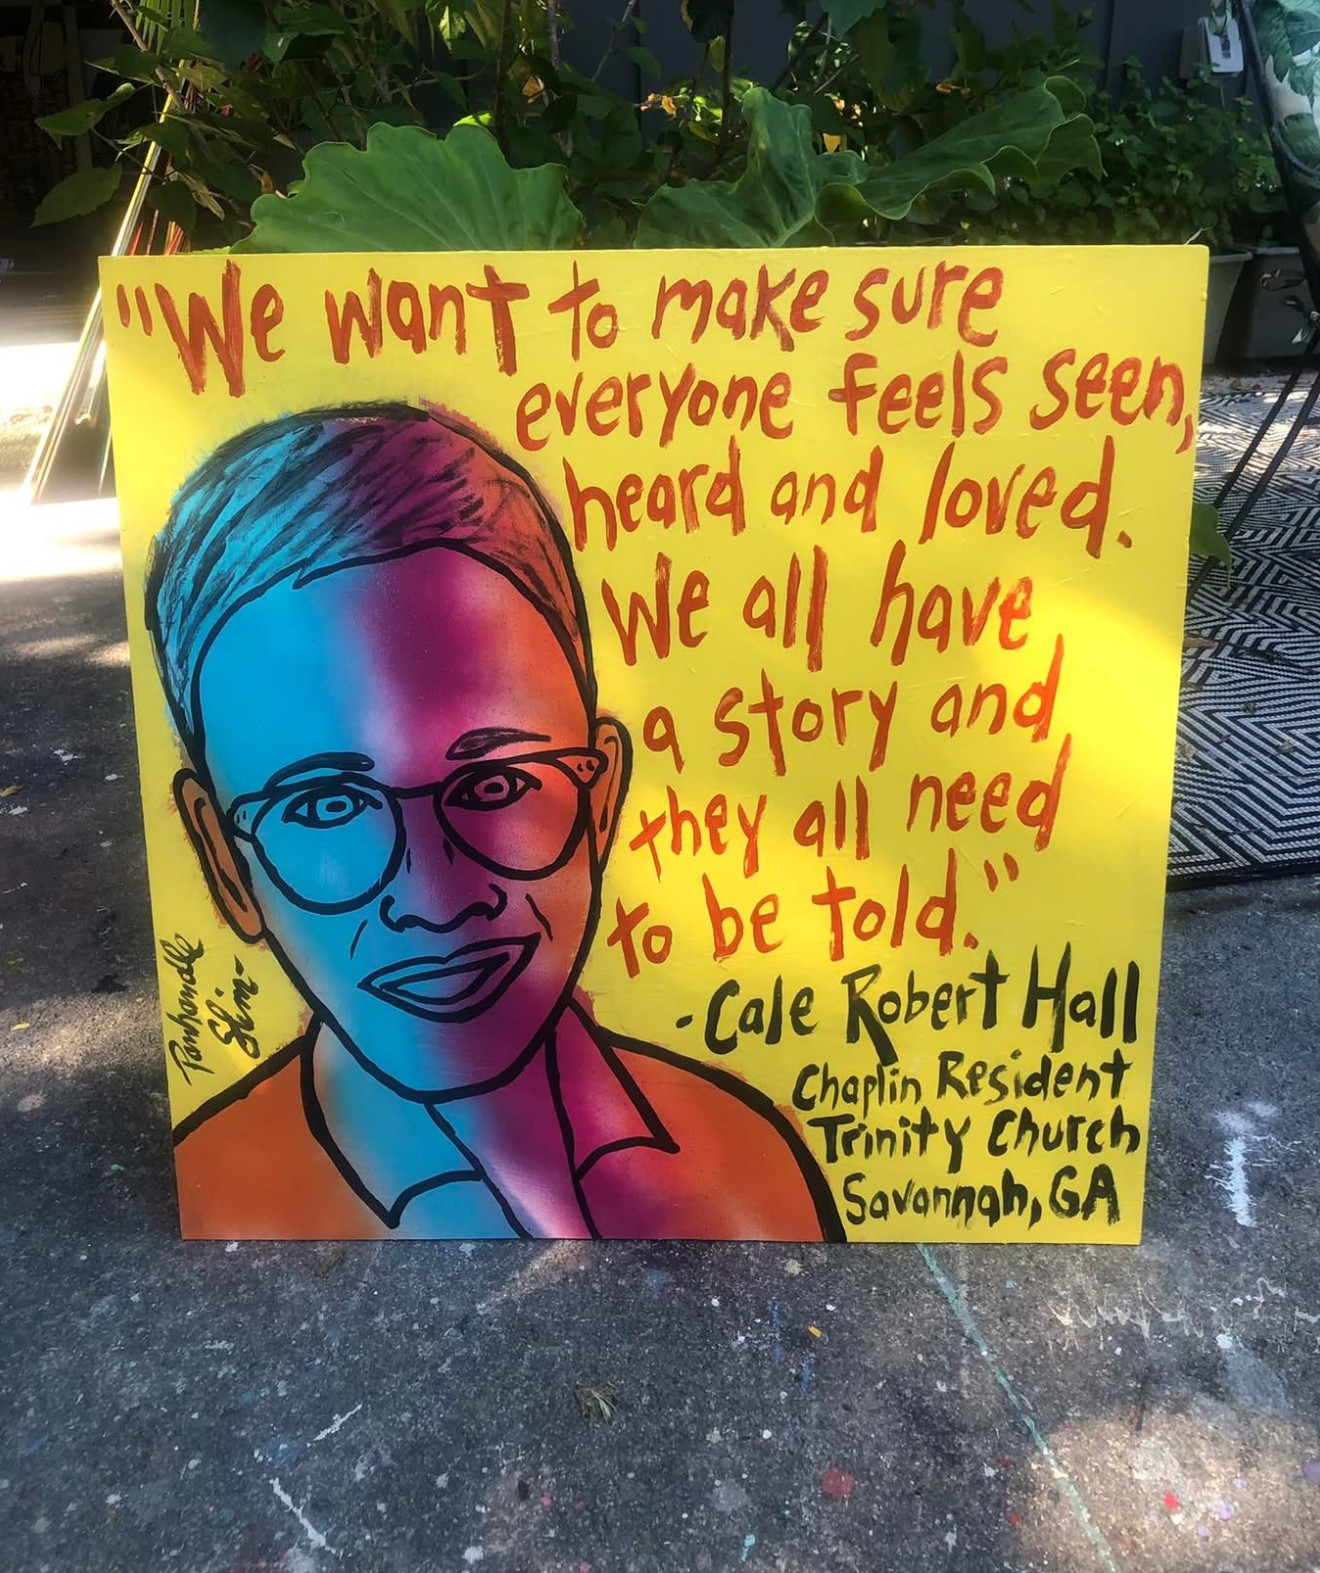 "We want to make sure
everyone feels seen,
heard and loved.
We all have
a story and
they all need
to be told."
-Cale Robert Hall
Chaplin Resident
Trinity Church
Savannah, GA
Panhandle
Slim-